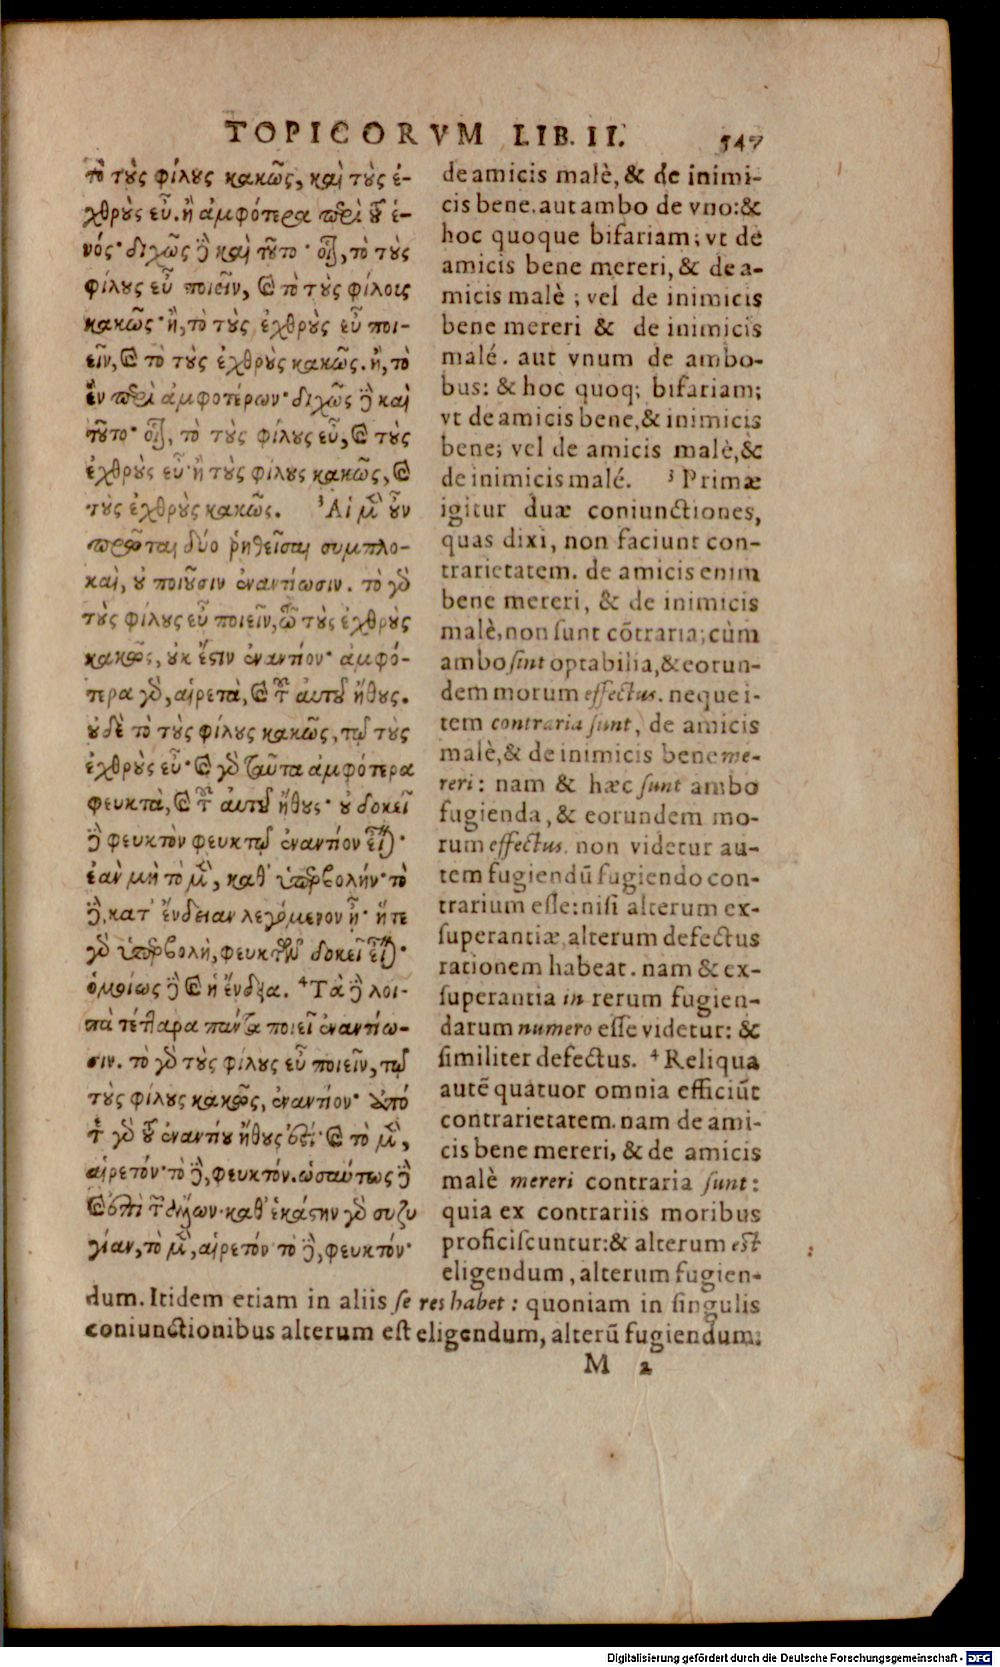 TOPICORVM LIB. II. 547
τὸ τοὺς φίλους κακῶς, καὶ τοὺς ἐ-
χθροὺς εὖ. ἢ ἀμφότερα περὶ τοῦ ἑ-
νός· διχῶς δὲ καὶ τοῦτο· οἷον, τὸ τοὺς
φίλους εὖ ποιεῖν, καὶ τὸ τοὺς φίλοις
κακῶς· ἢ, τὸ τοὺς ἐχθροὺς εὖ ποι-
εῖν, καὶ τὸ τοὺς ἐχθροὺς κακῶς. ἢ, τὸ
ἓν περὶ ἀμφοτέρων· διχῶς δὲ καὶ
τοῦτο· οἷον, τὸ τοὺς φίλους εὖ, καὶ τοὺς
ἐχθροὺς εὖ· ἢ τοὺς φίλους κακῶς, καὶ
τοὺς ἐχθροὺς κακῶς. ³Αἱ μὲν οὖν
πρῶται δύο ῥηθεῖσαι συμπλο-
καὶ, οὐ ποιοῦσιν ἐναντίωσιν. τὸ γὰρ
τοὺς φίλους εὖ ποιεῖν, τῷ τοὺς ἐχθροὺς
κακῶς, οὐκ ἔστιν ἐναντίον· ἀμφό-
τερα γὰρ, αἱρετὰ, καὶ τοῦ αὐτοῦ ἤθους.
οὐδὲ τὸ τοὺς φίλους κακῶς, τῷ τοὺς
ἐχθροὺς εὖ· καὶ γὰρ ταῦτα ἀμφότερα
φευκτὰ, καὶ τοῦ αὐτοῦ ἤθους· οὐ δοκεῖ
δὲ φευκτὸν φευκτῷ ἐναντίον εἶναι·
ἐὰν μὴ τὸ μὲν, καθ' ὑπερβολήν· τὸ
δὲ, κατ' ἔνδειαν λεγόμενον ᾖ· ἥτε
γὰρ ὑπερβολὴ, φευκτῶν δοκεῖ εἶναι·
ὁμοίως δὲ καὶ ἡ ἔνδεια. ⁴Τὰ δὲ λοι-
πὰ τέτταρα πάντα ποιεῖ ἐναντίω-
σιν. τὸ γὰρ τοὺς φίλους εὖ ποιεῖν, τῷ
τοὺς φίλους κακῶς, ἐναντίον· ἀπό
τε γὰρ τοῦ ἐναντίου ἤθους ἐστί· καὶ τὸ μὲν,
αἱρετόν· τὸ δὲ, φευκτόν. ὡσαύτως δὲ
καὶ ἐπὶ τῶν ἄλλων· καθ' ἑκάστην γὰρ συζυ
γίαν, τὸ μὲν, αἱρετόν τὸ δὲ, φευκτόν·
de amicis malè, & de inimi-
cis bene. aut ambo de vno: &
hoc quoque bifariam; vt de
amicis bene mereri, & de a-
micis malè ; vel de inimicis
bene mereri & de inimicis
malé. aut vnum de ambo-
bus: & hoc quoq; bifariam;
vt de amicis bene, & inimicis
bene; vel de amicis malè, &
de inimicis malé. ³ Primæ
igitur duæ coniunctiones,
quas dixi, non faciunt con-
trarietatem. de amicis enim
bene mereri, & de inimicis
malè, non sunt cõtraria; cùm
ambo sint optabilia, & eorun-
dem morum effectus. neque i-
tem contraria sunt, de amicis
malè, & de inimicis bene me-
reri: nam & hæc sunt ambo
fugienda, & eorundem mo-
rum effectus. non videtur au-
tem fugiendũ fugiendo con-
trarium esse: nisi alterum ex-
superantiæ, alterum defectus
rationem habeat. nam & ex-
superantia in rerum fugien-
darum numero esse videtur: &
similiter defectus. ⁴ Reliqua
autẽ quatuor omnia efficiũt
contrarietatem. nam de ami-
cis bene mereri, & de amicis
malè mereri contraria sunt:
quia ex contrariis moribus
proficiscuntur: & alterum est
eligendum, alterum fugien-
dum. Itidem etiam in aliis se res habet : quoniam in singulis
coniunctionibus alterum est eligendum, alterũ fugiendum.
M 2
Digitalisierung gefördert durch die Deutsche Forschungsgemeinschaft - DFG